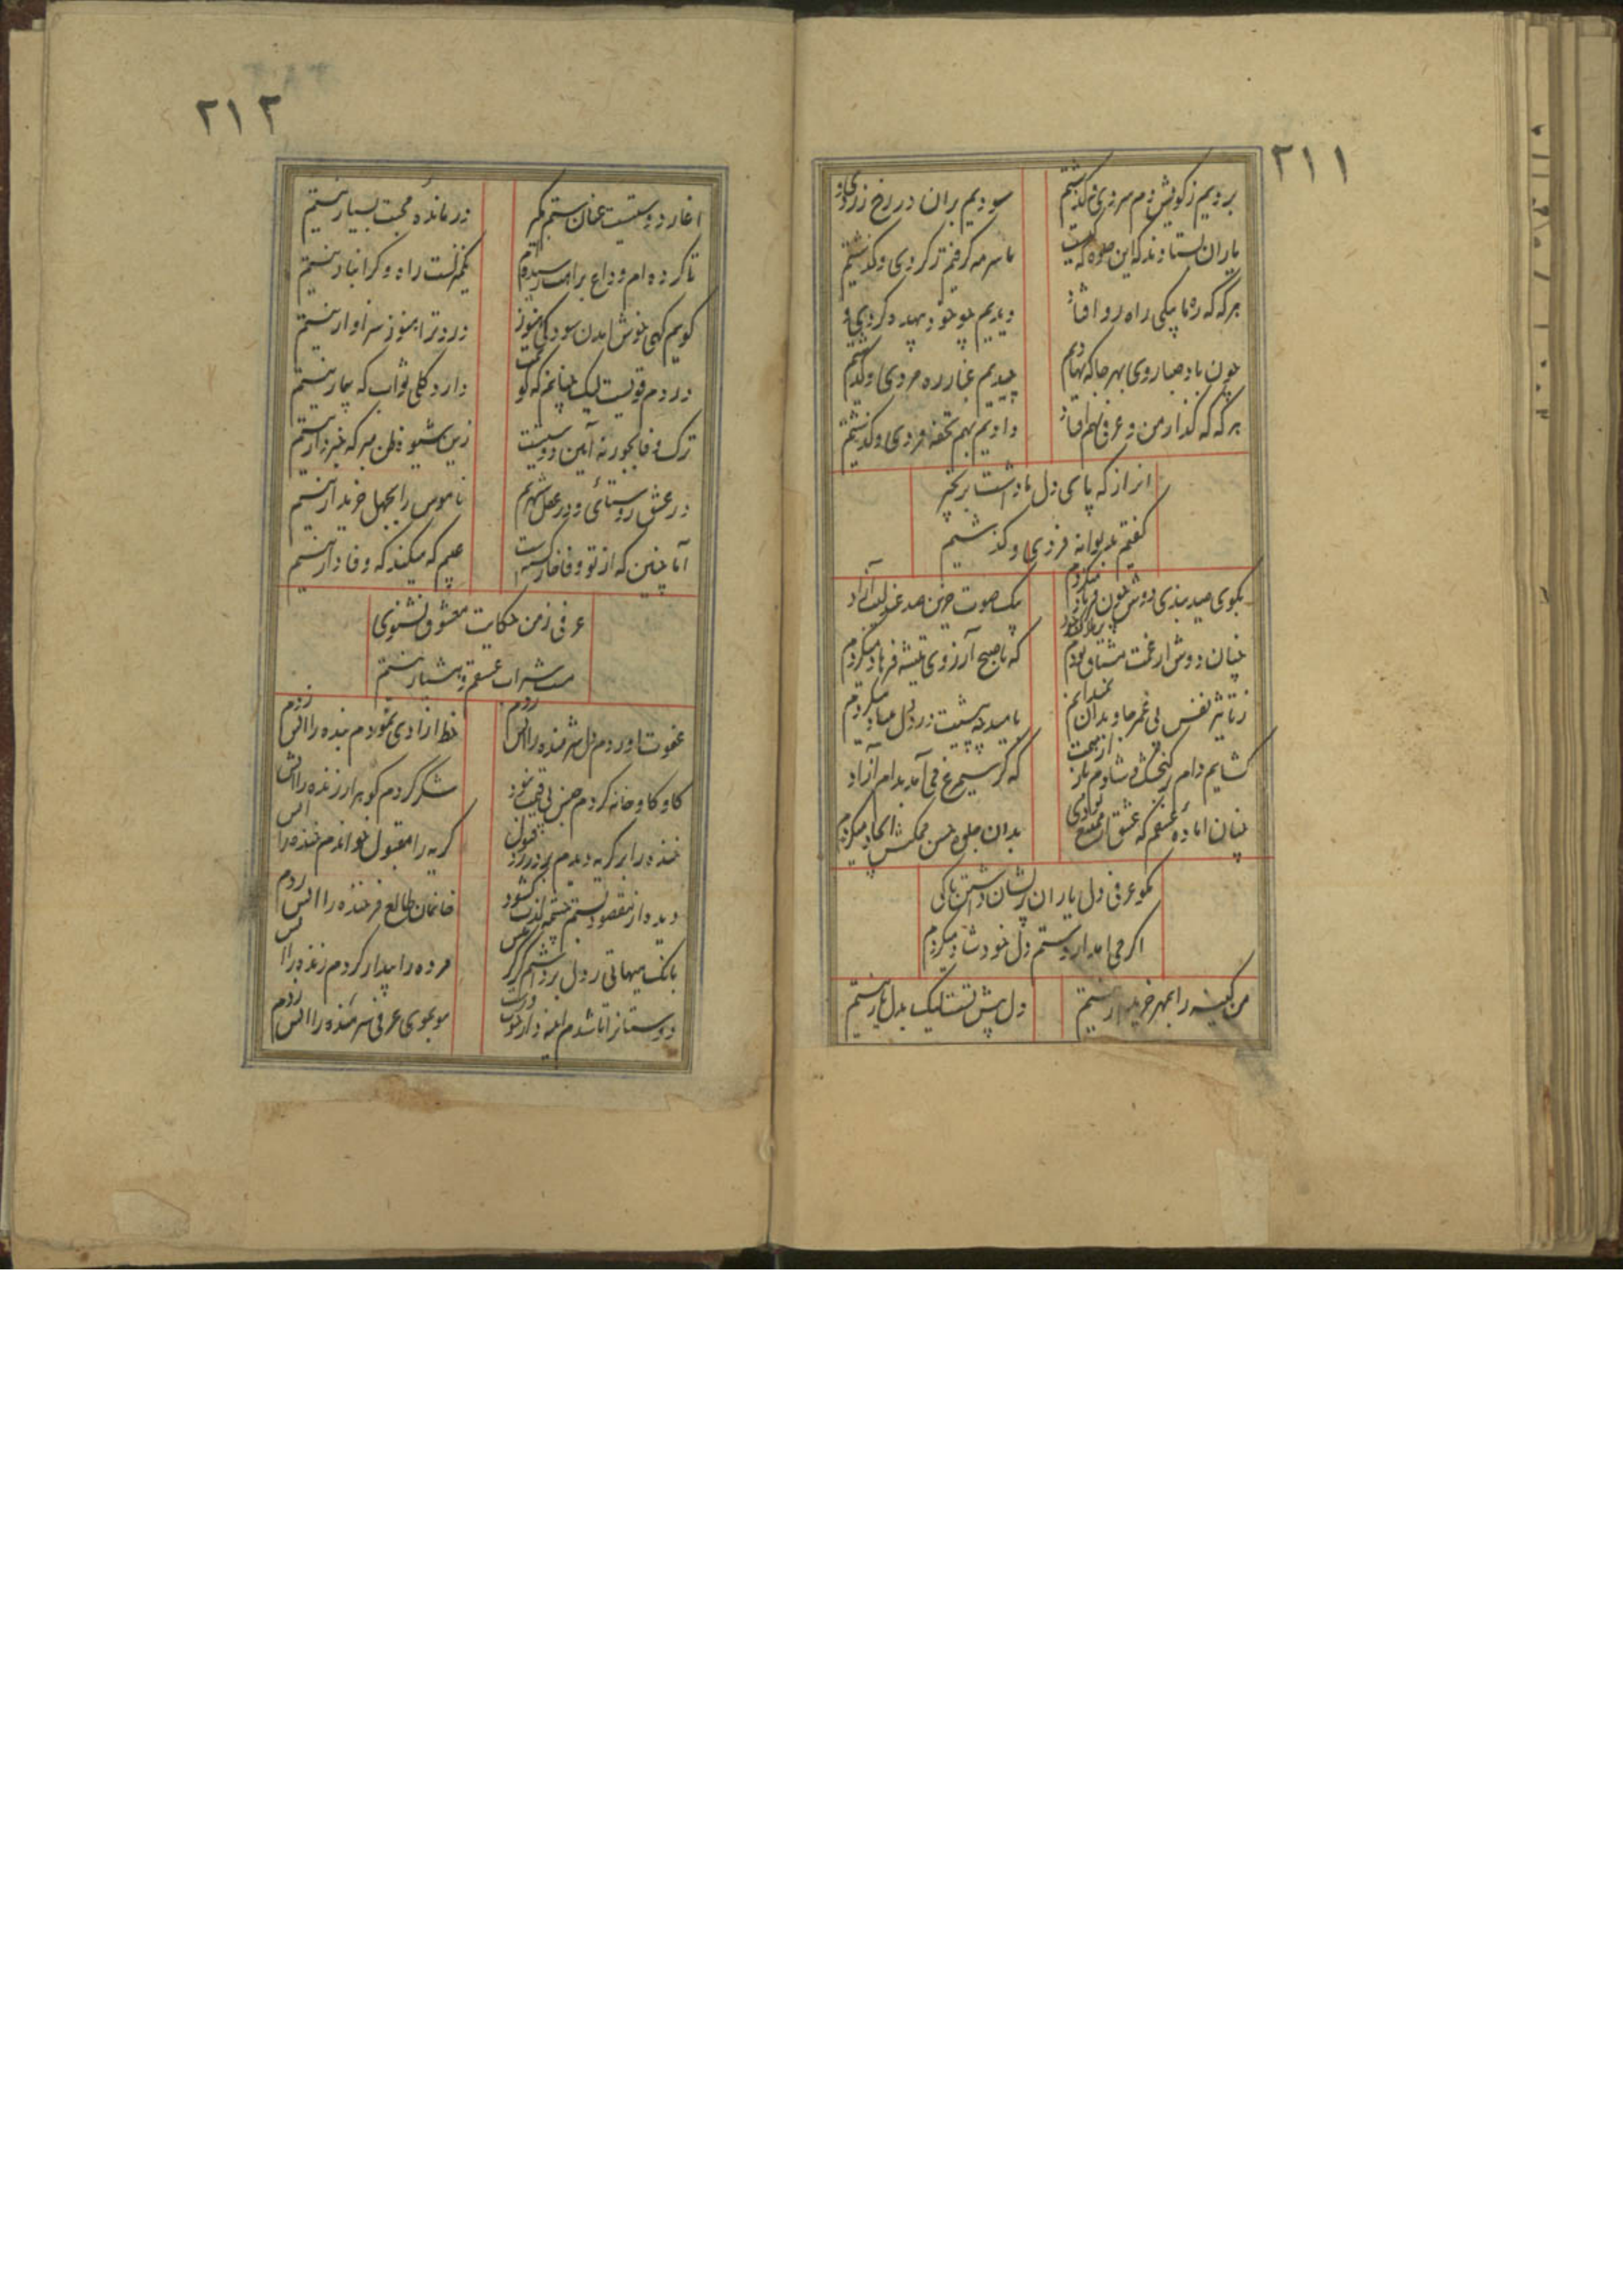 ۲۱۱
بردیم ز کویش دم سردی و گذشتیم
سودیم بران در رخ زردی و
یاران بستادند که این جلوه که کیست
ما سرمه گرفتیم ز گردی و گذشتیم
هر گه که ره ما بیکی راه رو افتاد
دیدیم چو خود بیهده گردی و
چون باد صبا روی بهر جا که نهادیم
چیدیم غبار ره مردی و گذشتیم
هر گه که گذار من و عرفی بهم افتاد
دادیم بهم تحفه دردی و گذشتیم
انراز که پای دل ما داشت بزنجیر
گفتیم بدیوانه فردی و گذشتیم
بکوی صید بندی دوش چون فریاد میکردم
بیک صوت حزین صد عندلیب آزاد
چنان دوش از غمت مشتاق بودم
که تا صبح آرزوی تیشه فرهاد میکردم
ز تاثیر نفس بی عمر جاویدان
بامید در دل صیاد میکردم
گشایم دام بر گنجشک و شادم یاد
که گر سیمرغ می آمد بدام آزاد
چنان اماده عشقم که عشق از
بدان جلوه حسن ممکنش ایجاد میکردم
مگو عرفی دل یاران پریشان داشتن تا کی
اگر می امد از دستم دل خود شاد میکردم
من کینه را بمهر خریدار نیستم
دل پیش تست لیک بدل یار نیستم
۲۱۲
اغاز دوستیست عنان ستم مگیر
درمانده محبت بسیار نیستم
تا کرده ام وداع برامت رسیده ام
یکمنزلست راه و گرانبار نیستم
گویم گهی خوش امدن سود کی هنوز
درد ترا هنوز سزاوار نیستم
دردم قویست لیک چنانم که گوئیت
دارد گلی ثواب که بیمار نیستم
ترک وفا بجور نه آیین دوستیست
زین شیوه ظن مبر که خبردار نیستم
در عشق روستائی و در عقل شهریم
ناموس را بجهل خریدار نیستم
اما چنین که از تو وفا خار گشته است
عیبم که میکند که وفادار نیستم
عرفی ز من حکایت معشوق نشنوی
مست شراب عشقم و هشیار نیستم
عفوت اوردم دل شرمنده را اتش زدم
خط ازادی نمودم بنده را اتش زدم
کاو کاو خانه کردم جنس بی قیمت نبود
شکر کردم گوهر ارزنده را اتش
خنده را بر گریه دیدم
گریه را مقبول خواندم خنده را اتش
دیده از مقصود بستم چشمه لذت گشود
خانمان طالع فرخنده را اتش زدم
بانک بیهاتی ز دل برداشتم
مرده را بیدار کردم زنده را
دوستانرا تا شدم
مو بموی عرفی شرمنده را اتش زدم